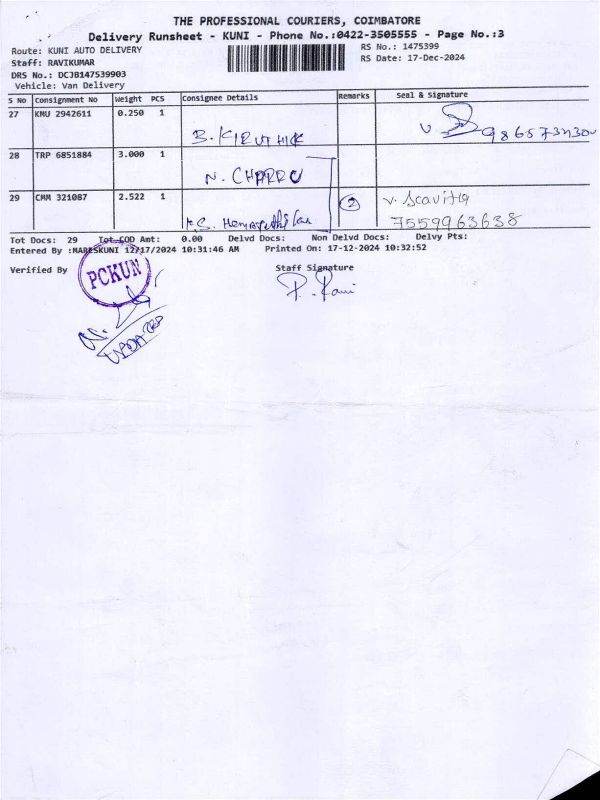 THE PROFESSIONAL COURIERS, COIMBATORE
Delivery Runsheet - KUNI - Phone No.:0422-3505555 - Page No.:3
Route: KUNI AUTO DELIVERY RS No.: 1475399
Staff: RAVIKUMAR RS Date: 17-Dec-2024
DRS No.: DCJB147539903
Vehicle: Van Delivery
S No Consignment No Weight PCS Consignee Details Remarks Seal & Signature
27 KMU 2942611 0.250 1
B. KIRUTHICK
28 TRP 6851884 3.000 1
N. CHARRU
29 CMM 321087 2.522 1 2
7559963638
Tot Docs: 29 Tot COD Amt: 0.00 Delvd Docs: Non Delvd Docs: Delvy Pts:
Entered By :MARESKUNI 12/17/2024 10:31:46 AM Printed On: 17-12-2024 10:32:52
Verified By Staff Signature
PCKUN
P. Ravi
UPDATED